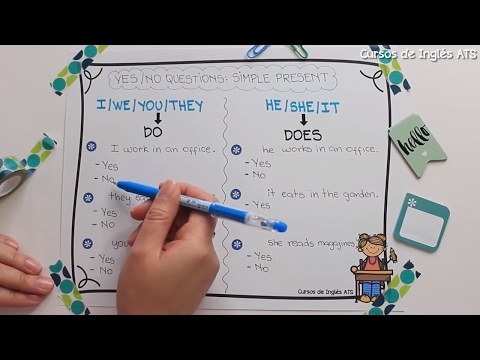 Cursos de Inglés ATS
YES/NO QUESTIONS: SIMPLE PRESENT
I/WE/YOU/THEY
DO
I work in an office.
- Yes
- No
they
- Yes
- No
you
- Yes
- No
HE/SHE/IT
DOES
he works in an office.
- Yes
- No
it eats in the garden.
- Yes
she reads magazines.
- Yes
- No
hello
Cursos de Inglés ATS